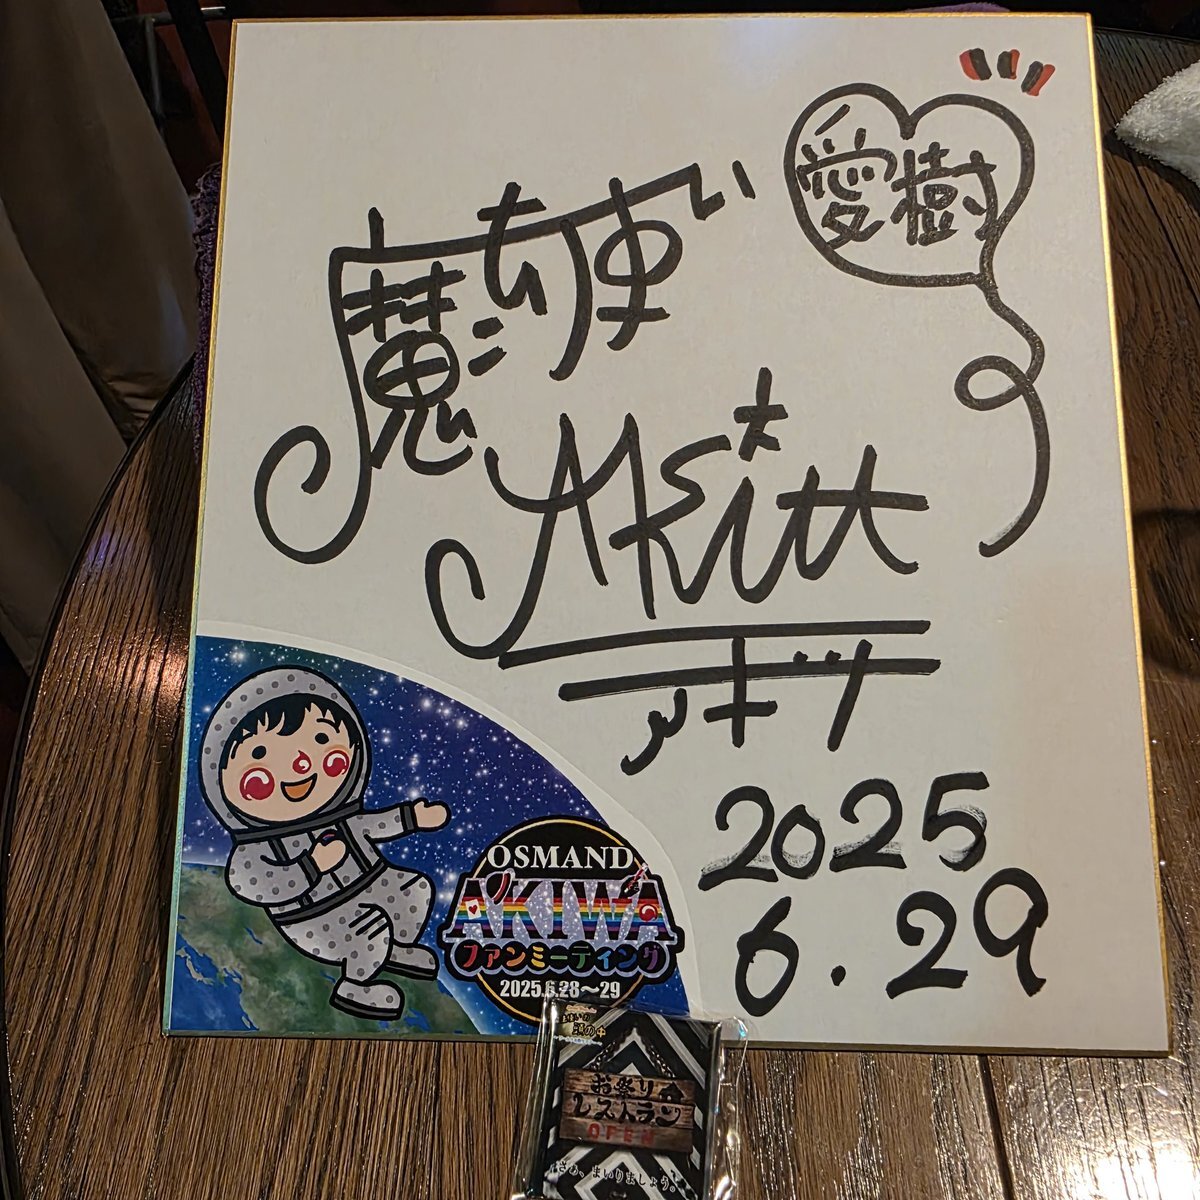 愛樹
魔法使い
Akitt
アキット
2025
6.29
OSMAND
AKIWA
ファンミーティング
2025.6.28〜29
お祭り
レストラン
OPEN
さぁ、まいりましょう。